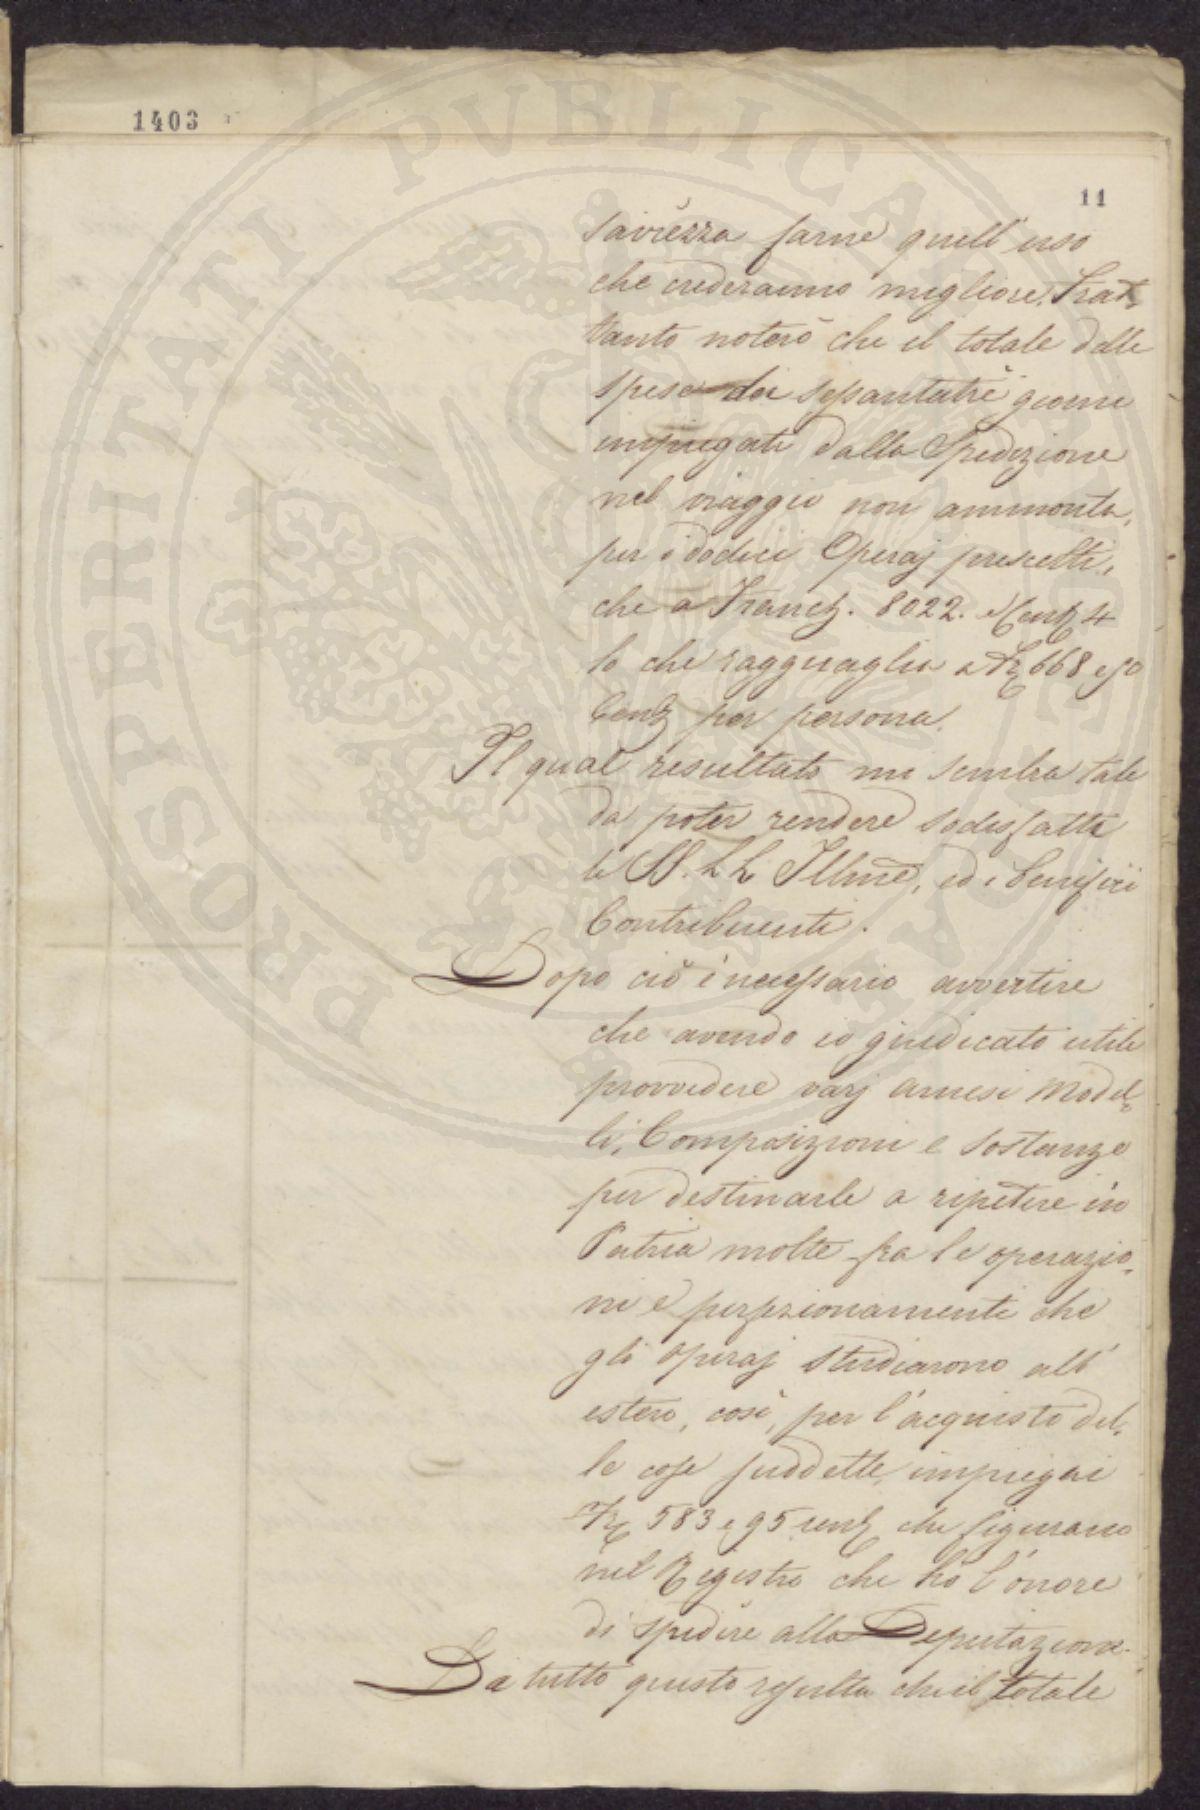 1403
11
PROSPERITATI PVBLICAE
saviezza farne quell'uso
che crederanno migliore. Frat=
tanto noterò che il totale delle
spese dei sessantatrè giorni
impiegati dalla Spedizione
nel viaggio non ammonta,
per i dodici Operaj prescelti,
che a Franchi. 8022. e Cent 4
lo che ragguaglia a Fr 668 e 50
Cent per persona.
Il qual resultato mi sembra tale
da poter rendere sodisfatti
le SS. LL Illme, ed i Benefici
Contribuenti.
Dopo ciò è necessario avvertire
che avendo io giudicato utile
provvedere varj arnesi Model=
li, Composizioni e sostanze
per destinarle a ripetere in
Patria molte fra le operazio=
ni e perfezionamenti che
gli operaj studiarono all'
estero, così, per l'acquisto del=
le cose suddette, impiegai
Fr 583 e 95 cent che figurano
nel Registro che hò l'onore
di spedire alla Deputazione.
Da tutto questo resulta che il totale